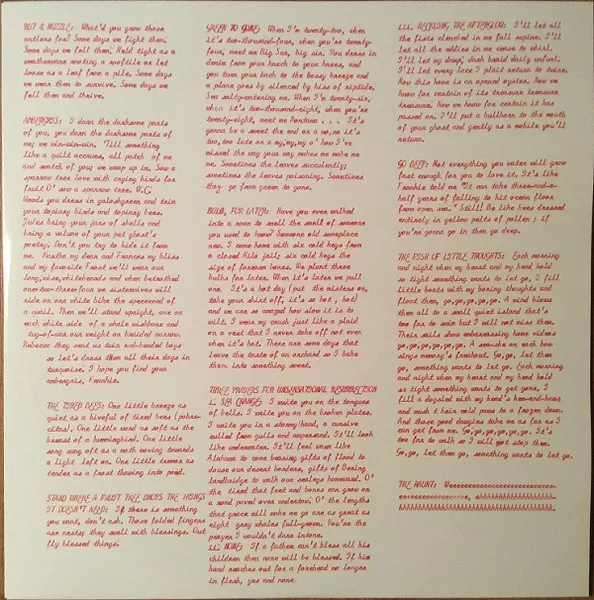 RUT & NUZZLE: What'd you grow those
antlers for? Some days we fight them.
Some days we fell them. Hold tight as a
weathervane nooting a rooftile or let
loose as a leaf from a pile. Some days
we wear them to survive. Some days we
fell them and thrive.
AMBERGRIS: I darn the darksome parts
of you, you darn the darksome parts of
me; we win-win-win. 'Till something
like a quilt accrues, all patch of me
and swatch of you; we wrap up in. Sew a
sparrow tree love with crying birds for
fruit O' sew a sparrow tree. W.C.
Woods you dress in galoshgreen and trim
your topiary birds and topiary bees.
Jules bring your jars of shells and
bring a volume of your pet ghost's
poetry. Don't you try to hide it from
me. Bertha my dear and Frances my bliss
and my favorite beast we'll wear our
long, wise, whitebeards and when betrothed
one-two-three-four we sisterwives will
side on one white bike the speeeeeed of
a quail. Then we'll stand upright, one on
each white side of a whale wishbone and
tug-of-war our weight on braided marrow.
Rebecca they sent us twin red-headed boys
so let's dress them all their days in
turquoise. I hope you find your
ambergris, Frankie.
THE TIRED BEES: One little breeze as
quiet as a hiveful of tired bees (pobre-
citos). One little word as soft as the
breast of a hummingbird. One little
song sung oft as a moth moving towards
a light left on. One little tremor as
tender as a frost thawing into pond.
STAND WHERE A FRUIT TREE DROPS THE THINGS
IT DOESN'T NEED: If there is something
you want, don't ask. Those folded fingers
are nests; they swell with blessings. Out
fly blessed things.
GREEN TO GONE: When I'm twenty-two, when
it's two-thousand-four, when you're twenty-
four, meet me Big Sur, big six. You dress in
denim from your knock to your knees, and
you turn your back to the bossy breeze and
a plane goes by silenced by hiss of riptide.
Sea salty-entering me. When I'm twenty-six,
when it's two-thousand-eight, when you're
twenty-eight, meet me Montana . . . It's
gonna be a sweet the end or a no, no it's
too, too late or a my, my, my o' how I've
missed the way your way makes me make me
me. Sometimes the leaves succulently;
sometimes the leaves poisoning. Sometimes
they go from green to gone.
BULB, FOR LATER: Have you ever walked
into a room to smell the smell of someone
you used to know? Someone old someplace
new. I come home with six cold keys from
a closed Rilo jail; six cold keys the
size of foreman bones. We plant three
bulbs for later. When it's later we pull
one. It's a hot day (put the misters on,
take your shirt off, it's so hot, hot)
and we are so amazed how slow it is to
wilt. I wear my crush just like a plaid
on a vest that I never take off not even
when it's hot. There are some days that
leave the taste of an orchard so I bake
them into something sweet.
THREE PRAYERS FOR UNSENSATIONAL RESURRECTION
i. SEA CHANGE: I write you on the tongues
of bells. I write you on the broken plates.
I write you in a stormy hand, a cursive
culled from gulls and ampersand. It'll look
like underwater. It'll feel warm like
Alabama to come bearing gifts of flood to
douse our desert borders, gifts of Bering
landbridge to walk our sealegs homeward. O'
the tired that feet and bones can grow on
a sand paved over undertow. O' the lengths
that grace will make me go are as great as
eight grey whales full-grown. You're the
prayer I wouldn't dare intone.
ii. NONE: If a father can't bless all his
children then none will be blessed. If his
hand reaches out for a forehead no longer
in flesh, yes and none.
iii. HERALDING THE AFTERGLOW: I'll let all
the fists clenched in me fall supine. I'll
let all the eddies in me cease to whirl.
I'll let my damp, dark braid dally unfurl.
I'll let every lace I plait return to twine.
Now this house is an opened oyster. Now we
know for certain of its treasure treasure
treasure. Now we know for certain it has
passed on. I'll put a bullhorn to the mouth
of your ghost and gently as a mobile you'll
return.
GO DEEP: Not everything you water will grow
fast enough for you to love it. It's like
Frankie told me "It can take three-and-a-
half years of falling to hit ocean floor
from open sea." Still! Be like bees dressed
entirely in yellow pelts of pollen; if
you're gonna go in then go deep.
THE RUSH OF LITTLE THOUGHTS: Each morning
and night when my heart and my hand hold
so tight something wants to let go, I fill
little boats with my boxing thoughts and
float them, go, go, go, go, go. A wind blows
them all to a small quiet island that's
too far to swim but I will not miss them.
Their sails show embarrassing home videos
go, go, go, go, go, go, go. A sea-she on each bow
sings memory's farewell. Go, go, let them
go, something wants to let go. Each morning
and night when my heart and my hand hold
so tight something wants to get gone, I
fill a dogsled with my hand's hem-and-haws
and mush it hein cold paws to a frozen dawn.
And those good doggies take me as far as I
can get from me. Go, go, go, go, go, go. It's
too far to walk so I will not stop them.
Go, go, let them go, something wants to let go.
THE HAUNT: